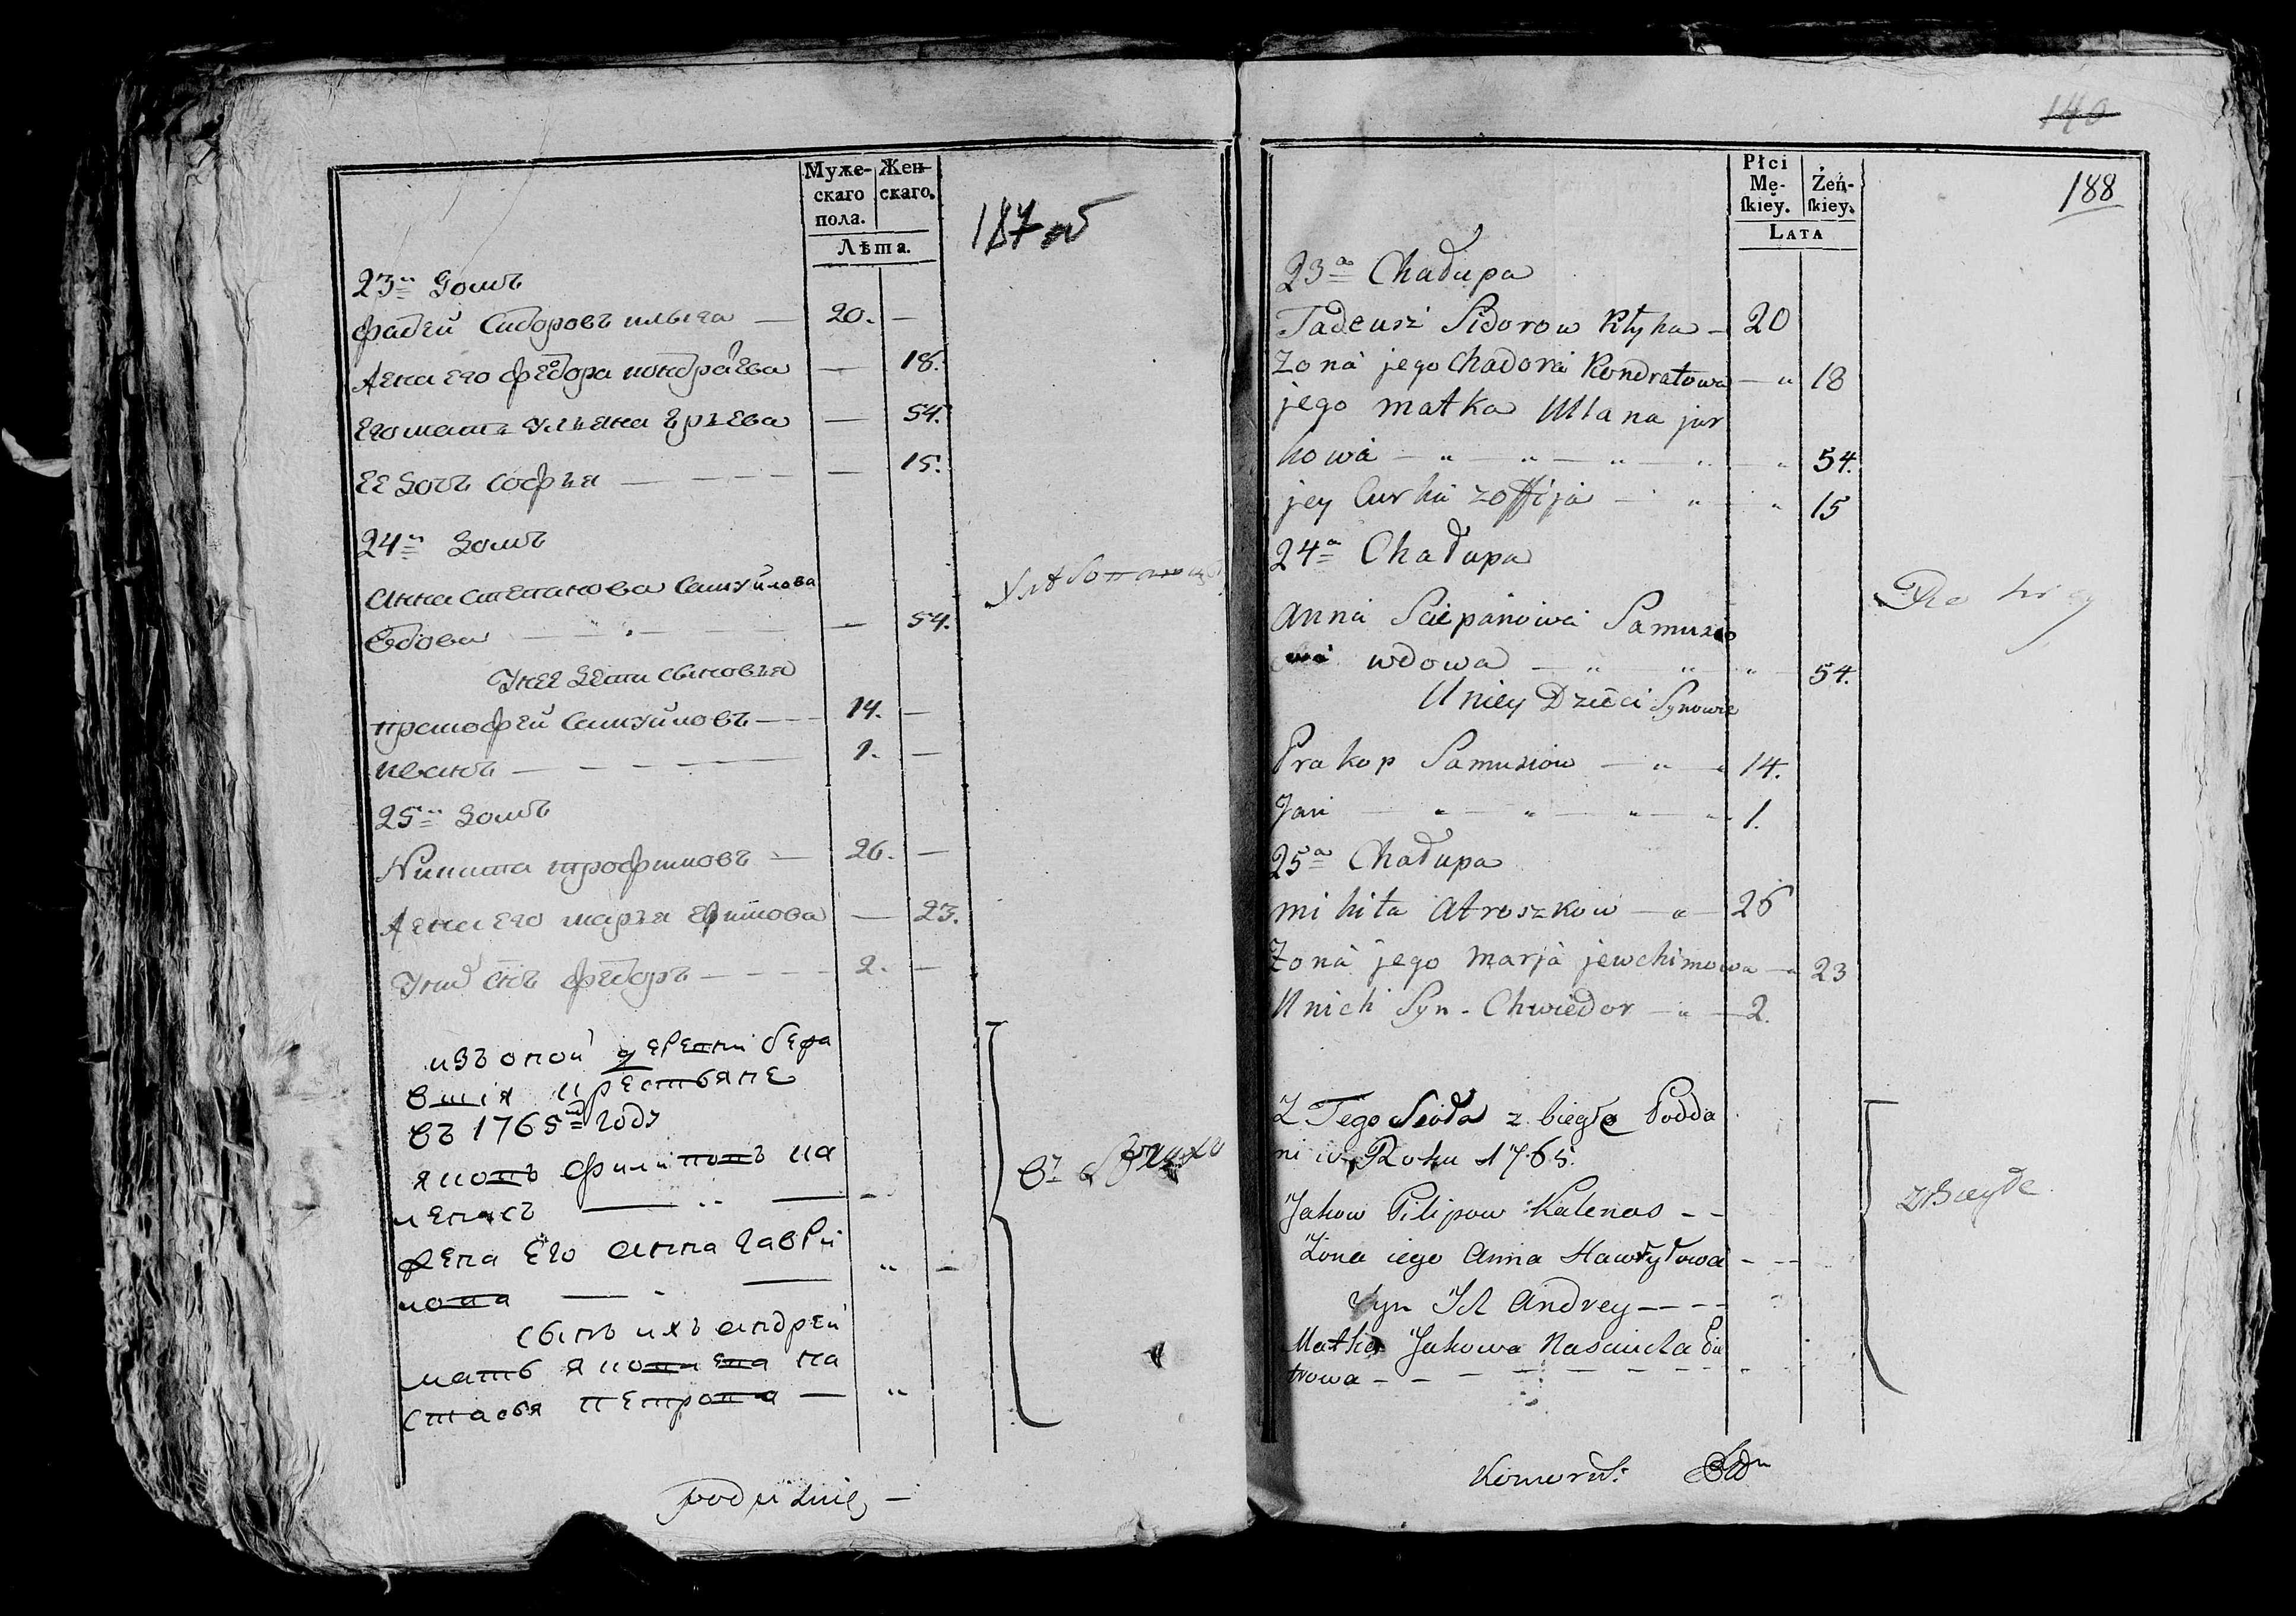 Муже-
скаго
пола.
Жен-
скаго.
Лѣта.
187 об
23й домъ
фадей Сидоровъ клыга — 20. —
Жена его федора кондратьева — 18.
Его мать ульяна юрьева — 54.
Ее дочь софья — — — — 15.
24й домъ
Анна степанова самуйлова
вдова — — — — 54.
У нее дети сыновья
прокофей самуйловъ — — 14. —
иванъ — — — — 1. —
25й домъ
Никита трофимовъ — 26. —
Жена его марья ефимова — 23.
У них снъ федоръ — — — — 2. —
изъ оной деревни бежа
вшія крестьяне
въ 1765м году
яковъ филиповъ ка
ленасъ — —
жена его анна гаври
лова — —
сынъ ихъ андрей
мать яковлева на
стасья петрова —
въ бегахъ
140
188
Płci
Mę-
ſkiey.
Żeń-
ſkiey.
LATA
23a Chałupa
Tadeusz Sidorow Kłyha — 20
Zona jego Chadora Kondratowa — 18
jego matka Ulana jur
kowa — — — — 54.
jey Curka zoffija — 15
24a Chałupa
Anna Sciepanowa Samusio
wa wdowa — 54.
U niey Dzieci Synowie
Prakop Samusiow — 14.
Jan — — — — 1.
25a Chałupa
mikita Atroszkow — 26
Zona jego marja jewchimowa — 23
U nich Syn - Chwiedor — 2.
Z Tego Sioła zbiegłe Podda
ni w Roku 1765.
Jakow Pilipow Kalenas - -
Zona iego Anna Hawryłowa - - -
Syn Ich Andrey - - - -
Matka Jakowa Nascucha Pia
trowa - - - - - - - -
Zbiegłe